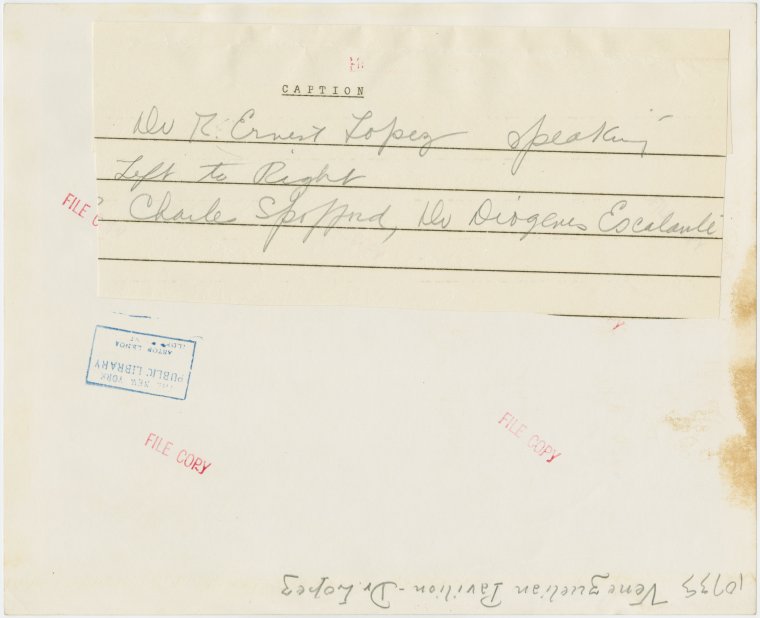 CAPTION
Dr R. Ernest Lopez speaking
Left to Right
Charles Spofford, Dr Diogenes Escalante
FILE C
THE NEW YORK
PUBLIC LIBRARY
ASTOR LENOX
FILE COPY
FILE COPY
Venezuelian Pavilion - Dr. Lopez